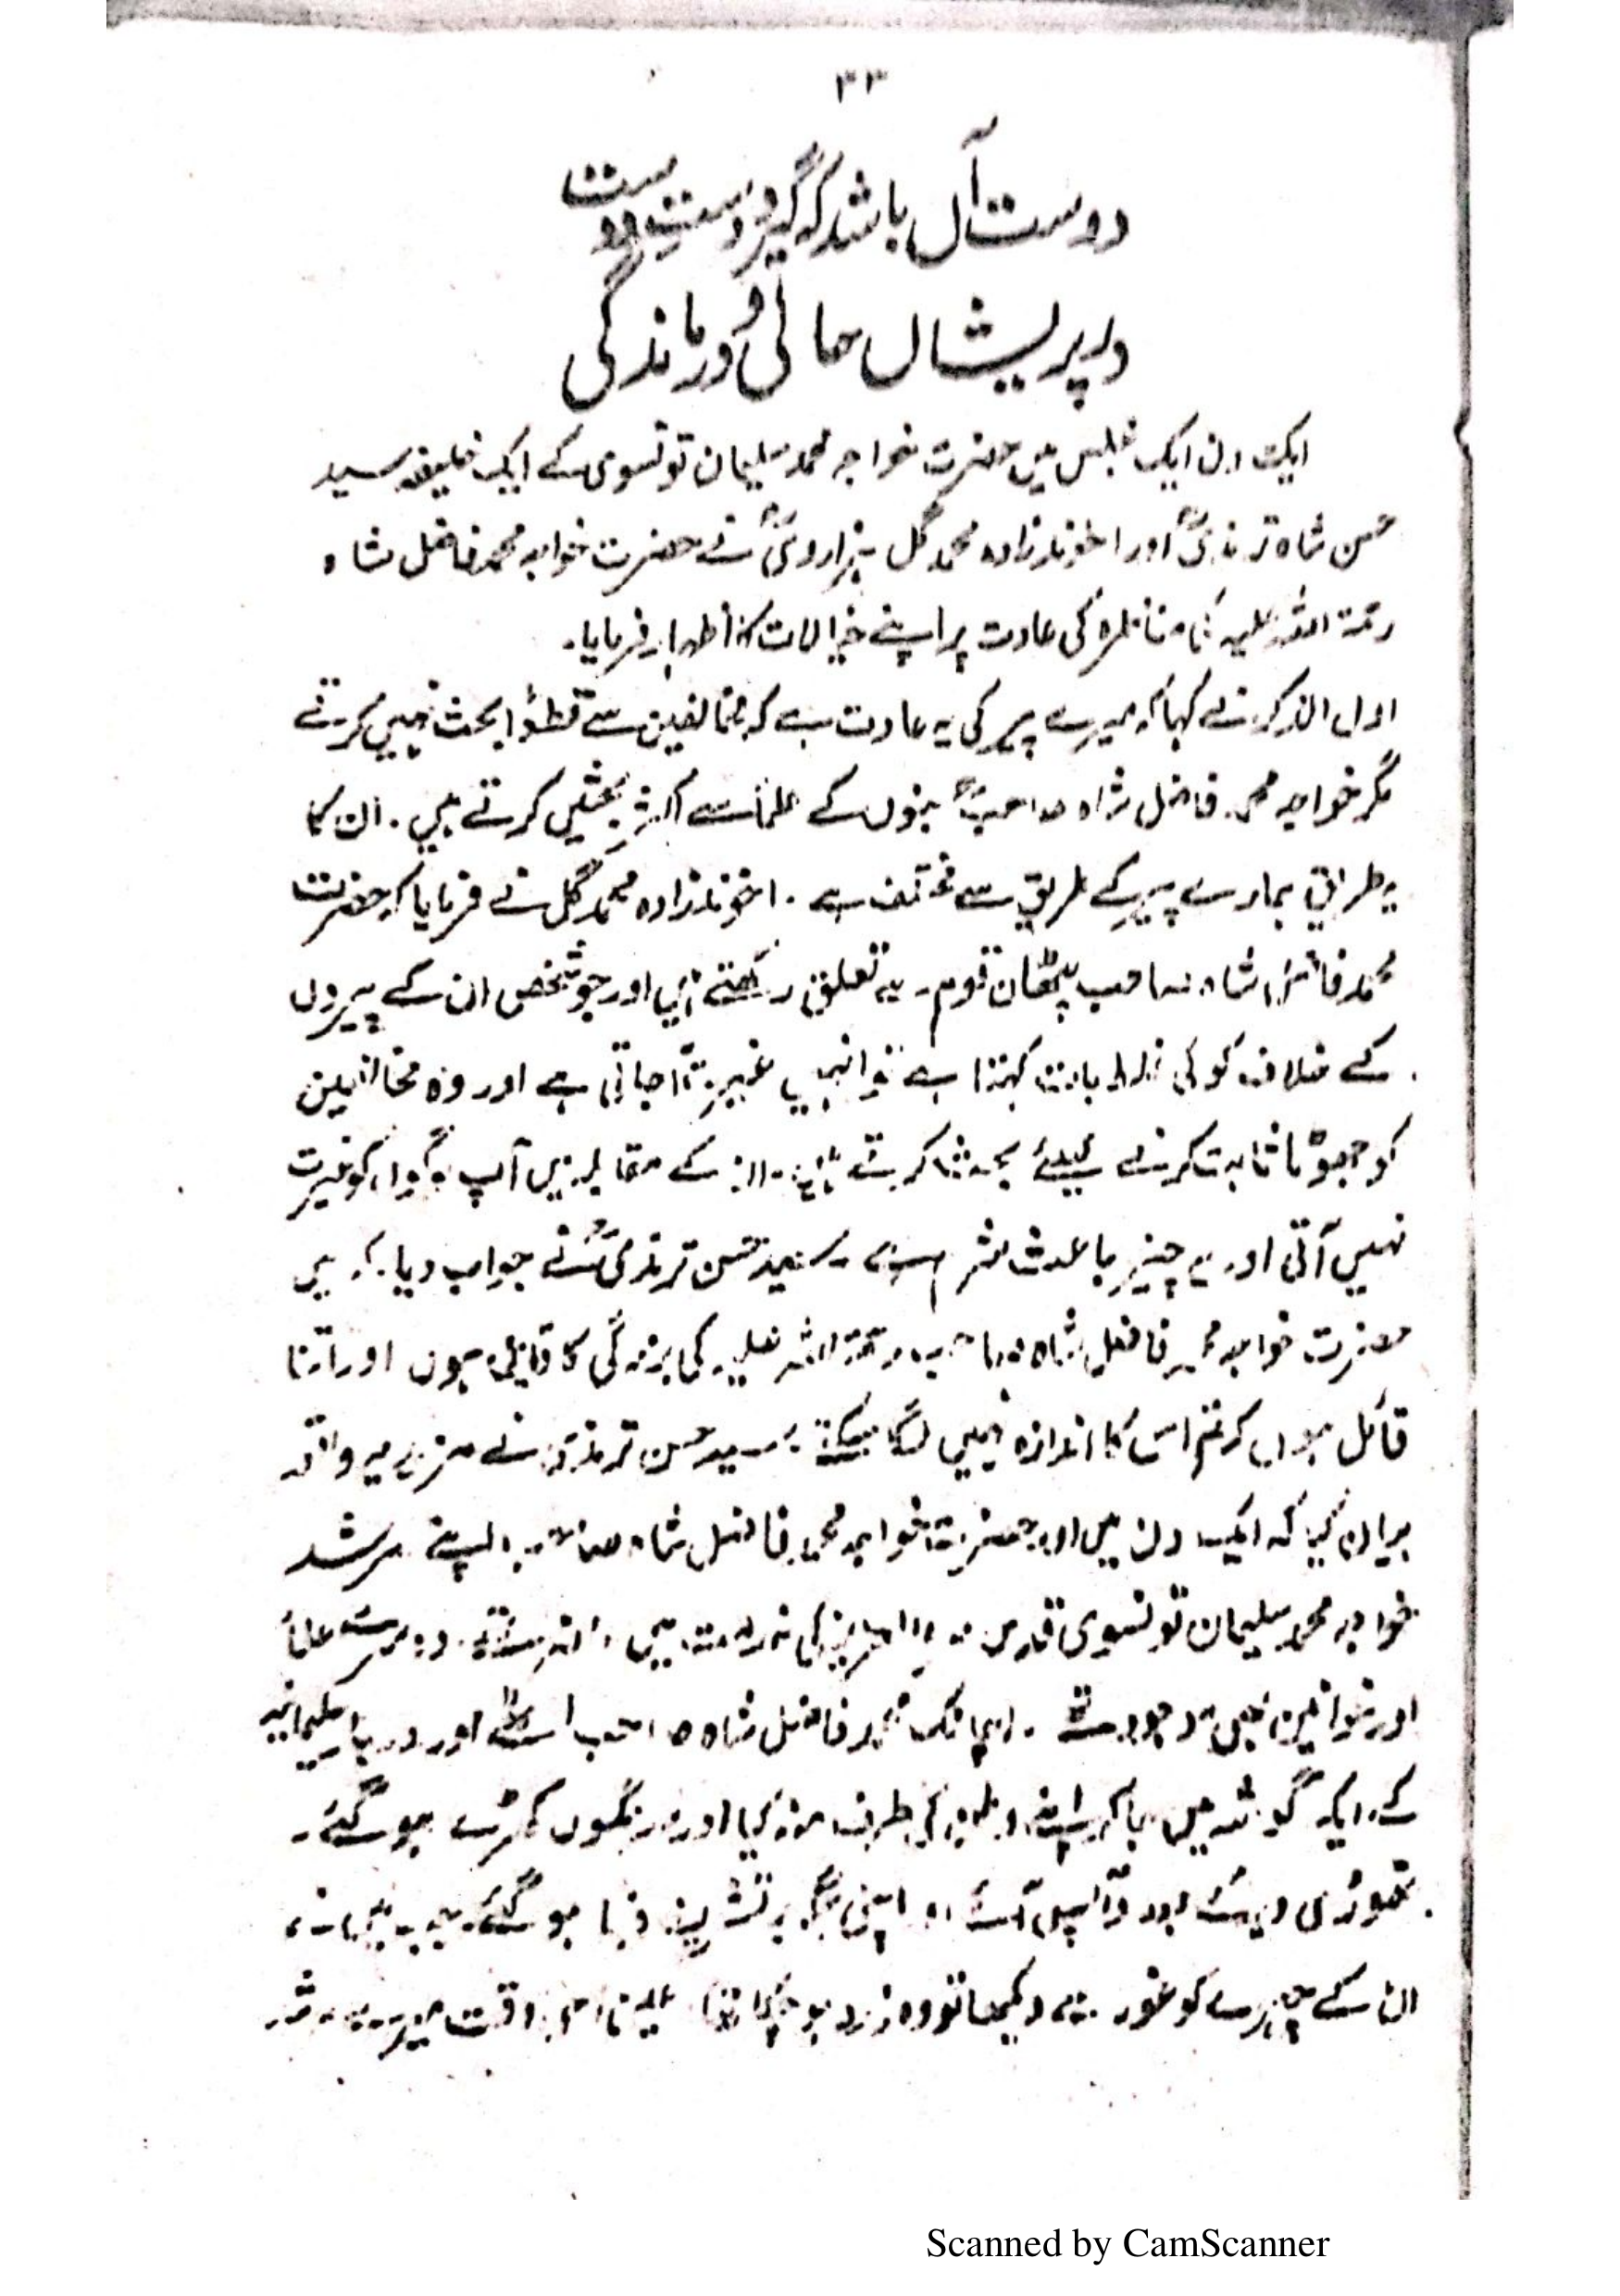 ۳۳
دوست آں باشد کہ گیرد دست دوست
در پریشاں حالی و درماندگی
ایک دن ایک مجلس میں حضرت خواجہ محمد سلیمان تونسوی کے ایک خلیفہ سید
حسن شاہ ترمذیؒ اور اخوندزادہ محمد گل ہزارویؒ نے حضرت خواجہ محمد فاضل شاہ
رحمۃ اللہ علیہ کی مناظرہ کی عادت پر اپنے خیالات کا اظہار فرمایا۔
اول الذکر نے کہا کہ میرے پیر کی یہ عادت ہے کہ مخالفین سے قطعاً بحث نہیں کرتے
مگر خواجہ محمد فاضل شاہ صاحبؒ بنوں کے علماً سے اکثر بحثیں کرتے ہیں۔ ان کا
یہ طریق ہمارے پیر کے طریق سے مختلف ہے۔ اخوندزادہ محمد گل نے فرمایا کہ حضرت
محمد فاضل شاہ صاحب پٹھان قوم سے تعلق رکھتے ہیں اور جو شخص ان کے پیروں
کے خلاف کوئی غلط بات کہتا ہے تو انہیں غیرت آ جاتی ہے اور وہ مخالفین
کو جھوٹا ثابت کرنے کیلئے بحث کرتے ہیں۔ ان کے مقابلہ میں آپ لوگوں کو غیرت
نہیں آتی اور یہ چیز باعث شرم ہے۔ سید حسن ترمذیؒ نے جواب دیا۔ کہ میں
حضرت خواجہ محمد فاضل شاہ صاحب رحمۃ اللہ علیہ کی بزرگی کا قائل ہوں اور اتنا
قائل ہوں کہ تم اس کا اندازہ نہیں لگا سکتے۔ سید حسن ترمذیؒ نے مزید یہ واقعہ
بیان کیا کہ ایک دن میں اور حضرت خواجہ محمد فاضل شاہ صاحب اپنے مرشد
خواجہ محمد سلیمان تونسوی قدس سرہ العزیز کی خدمت میں حاضر تھے۔ دوسرے علماً
اور خوانین بھی موجود تھے۔ اچانک محمد فاضل شاہ صاحب اٹھے اور دربار سلیمانیہ
کے ایک گوشہ میں جا کر اپنے وطن کی طرف منہ کیا اور سرنگوں کھڑے ہو گئے۔
تھوڑی دیر کے بعد واپس آئے اور اپنی جگہ پر تشریف فرما ہو گئے۔ جب میں نے
ان کے چہرے کو غور سے دیکھا تو وہ زرد ہو چکا تھا۔ وقت
Scanned by CamScanner